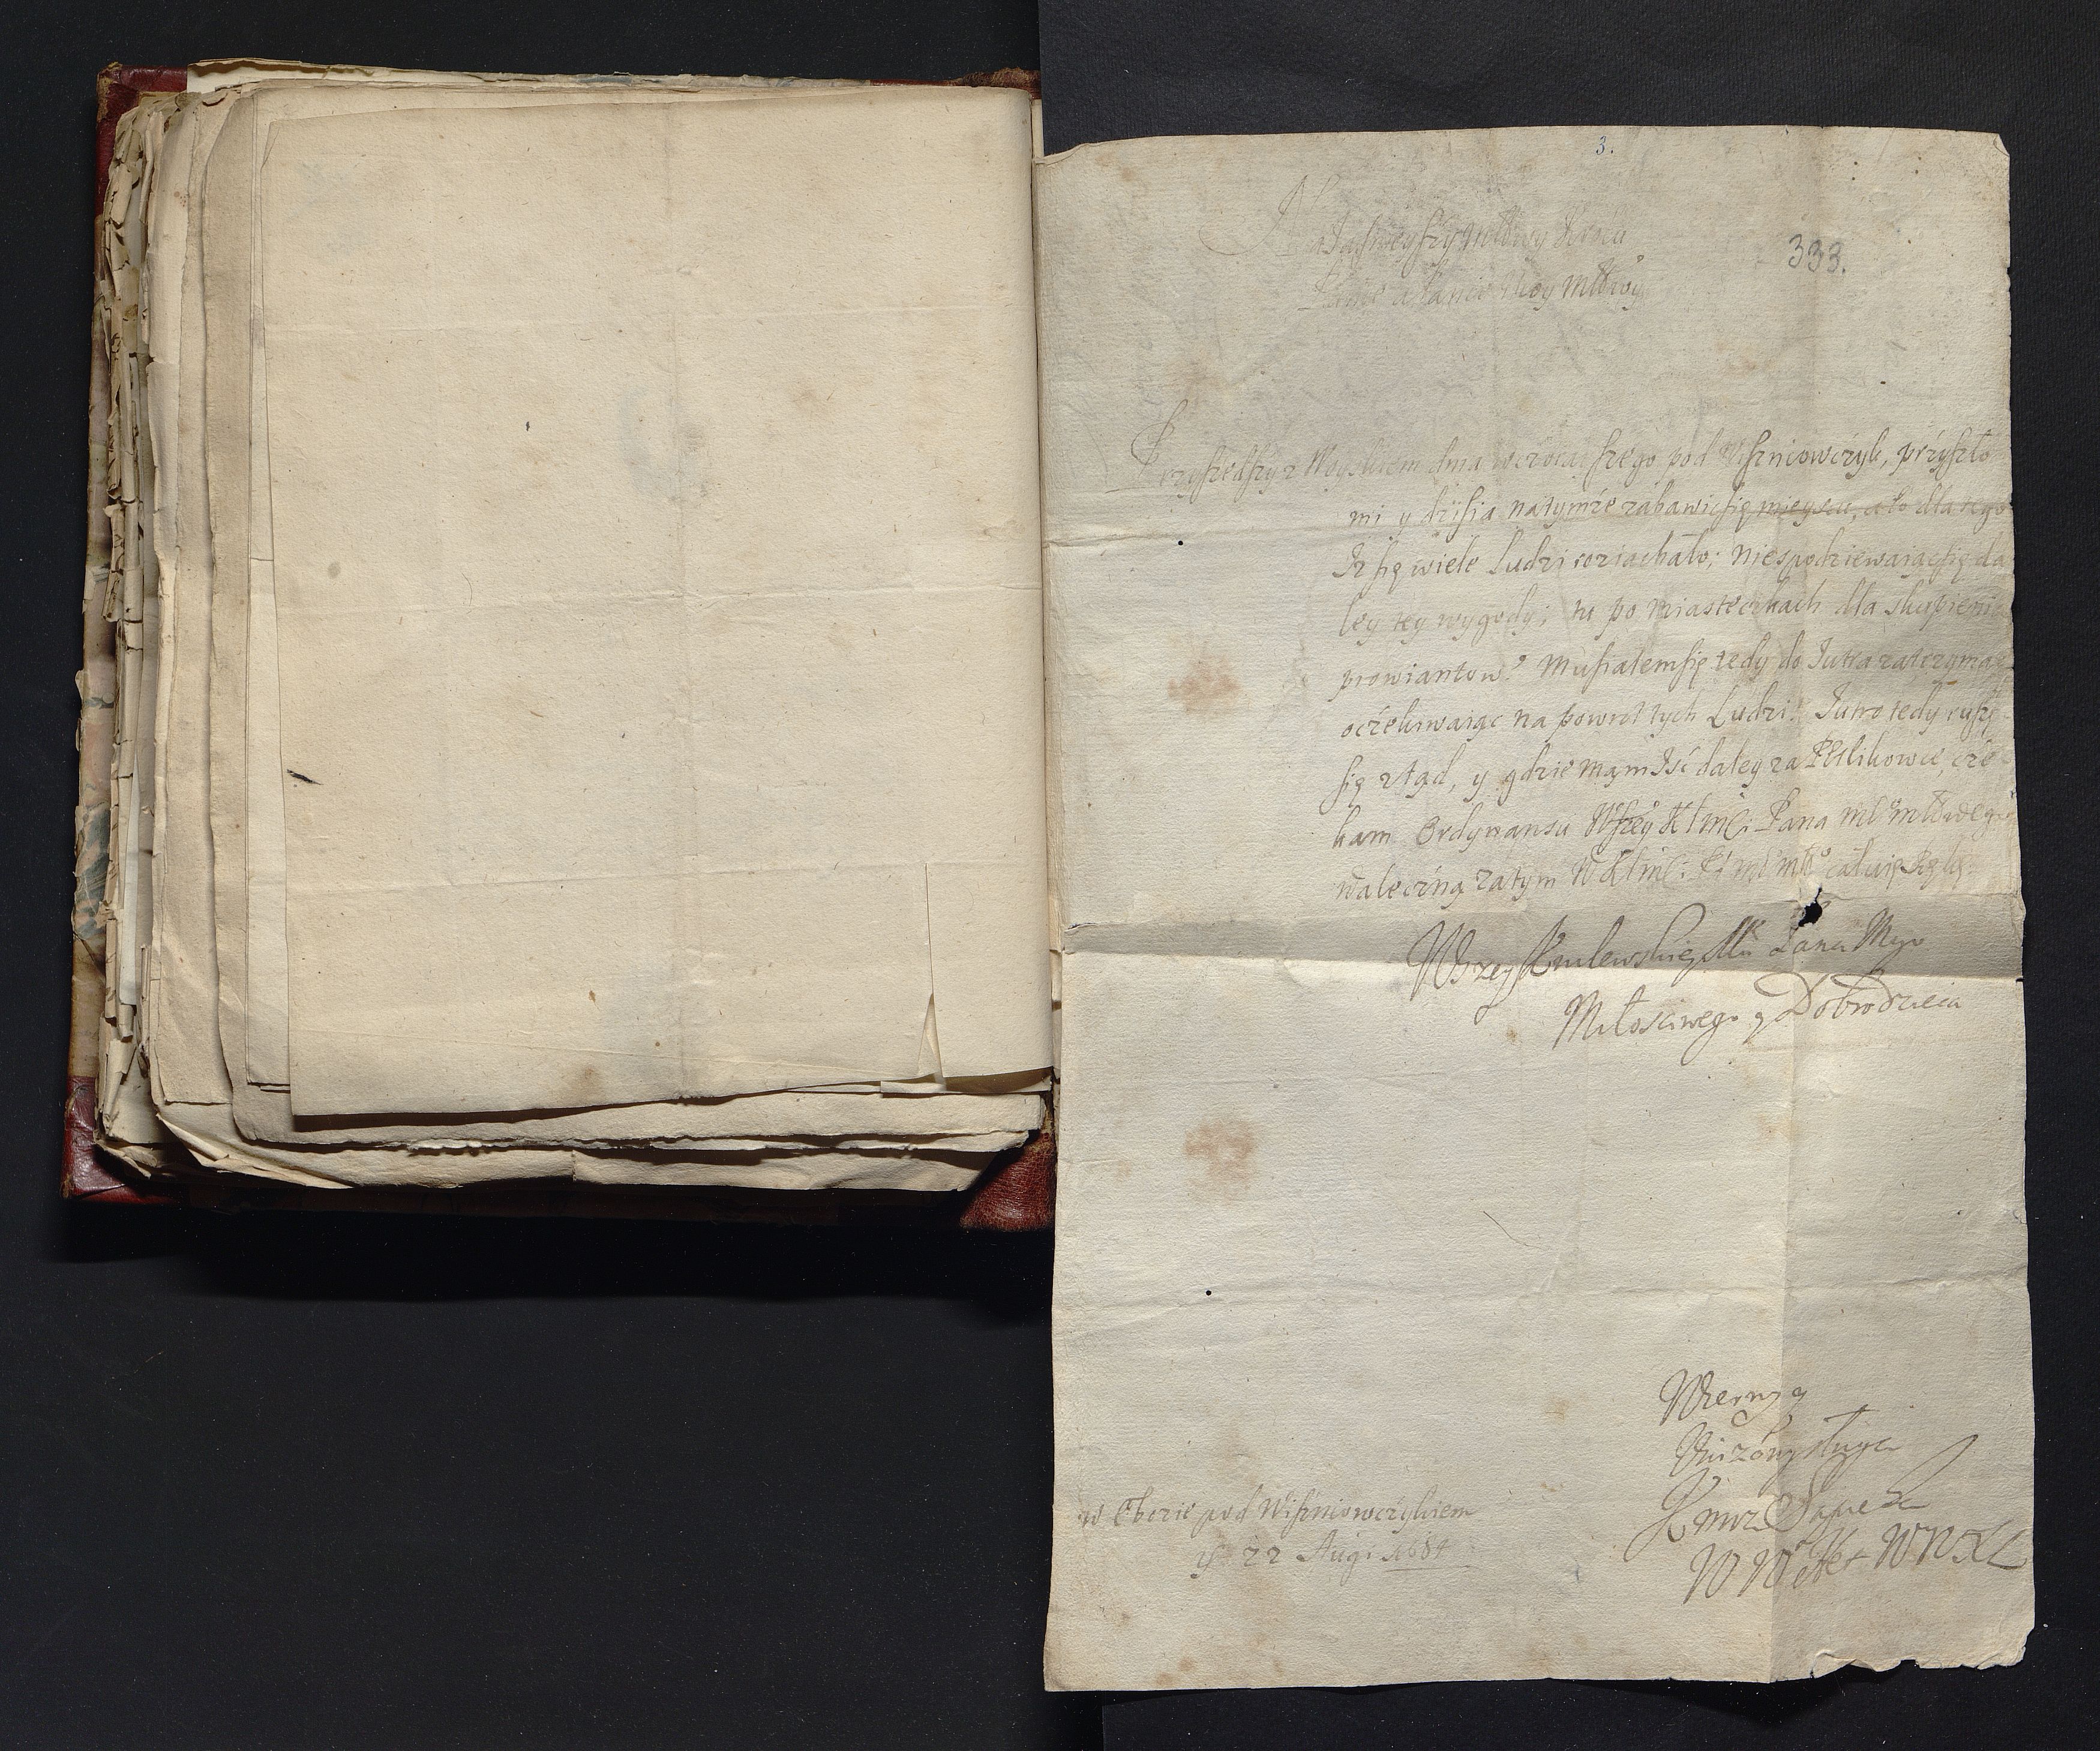 3.
333.
Naiaśnieyszy Miłłwy Krolu
Panie a Panie Moy Miłłwy
Przyszedszy z Woyskiem dnia wczoraiszego pod Wiszniowczyk, przyszło
mi y dzisia natymże zabawic się mieyscu, a to dla tego
Iz się wiele Ludzi roziachało; niespodziewaiąc się da
ley tey wygody; tu po miasteczkach dla skupienia
prowiantow. Musiałem się tedy do Iutra zatrzymac
oczekiwaiąc na powrot tych Ludzi. Iutro tedy ruszę
się ztąd, y gdzie mąm Iść daley za cze
kam Ordynansu Wszey Kmci Pana mo
waleczną zatym całuię rękę
Wszey Krulewskiey Mci Pana Mego
Miłosciwego y Dobrodzieia
Wierny y
Unizony sługa
Kmrz Sapieha
W W Het W X L
w Obozie pod Wiszniowczykiem
22 Aug: 1684